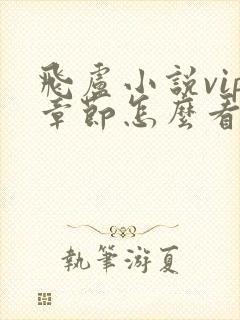 飛盧小說vip
章節怎麼看
執筆游夏